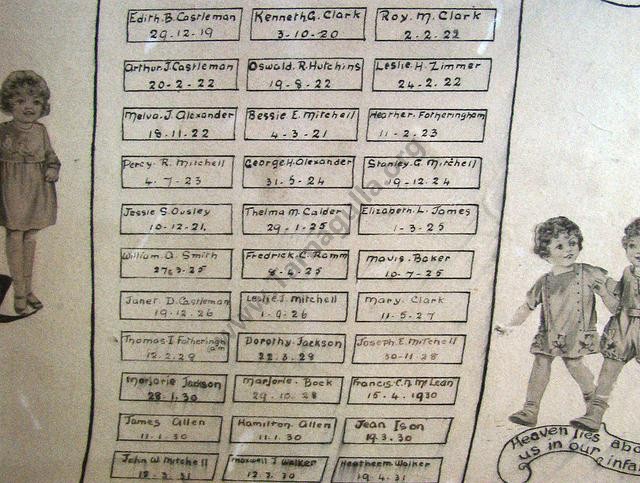 Edith. B. Castleman
29.12.19
Kenneth G. Clark
3-10-20
Roy. M. Clark
2.2.22
Arthur. J. Castleman
20-2-22
Oswald. R. Hutchins
19.8.22
Leslie. H. Zimmer
24-2.22
Melva. J. Alexander
18.11.22
Bessie E. Mitchell
4-3-21
Heather. Fotheringham
11-2.23
Percy. R. Mitchell
4.7-23
George. H. Alexander
31.5-24
Stanley. G. Mitchell
19-12.24
Jessie S. Ousley
10-12-21.
Thelma M. Calder
29.1-25
Elizabeth. L. James
1-3-25
William. A. Smith
27.3.25
Fredrick. C. Ramm
8-4.25
Mavis. Baker
10-7-25
Janet D. Castleman
19.12.26
Leslie J. Mitchell
1-9-26
Mary. Clark
11-5-27
Thomas I Fotheringham
12.2.29
Dorothy. Jackson
22.3.29
Joseph. E. Mitchell
30-11-28
Marjorie Jackson
28.1.30
Marjorie. Bock
29.10.28
Francis. C. N. McLean
15.4.1930
James Allen
11.1.30
Hamilton Allen
11.1.30
Jean Ison
19.3.30
John W. Mitchell
Maxwell J Walker
12.3.30
Walker
19.4.31
Heaven lies
us in our